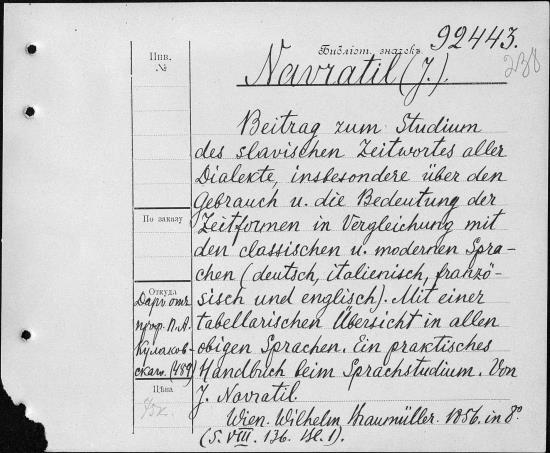 Библіот. значекъ 92443.
Инв.
№
Navratil (J.)
Beitrag zum Studium
des slavischen Zeitwortes aller
Dialekte, insbesondere über den
Gebrauch u. die Bedeutung der
Zeitformen in Vergleichung mit
den classischen u. modernen Spra-
chen (deutsch, italienisch, franzö-
sisch und englisch). Mit einer
tabellarischen Übersicht in allen
obigen Sprachen. Ein praktisches
Handbuch beim Sprachstudium. Von
J. Navratil.
Wien. Wilhelm Braumüller. 1856. in 8°
(S. VIII. 136. Bl. 1).
По заказу
Откуда
Даръ отъ
проф. П. А.
Кулаков-
скаго. (489)
Цѣна